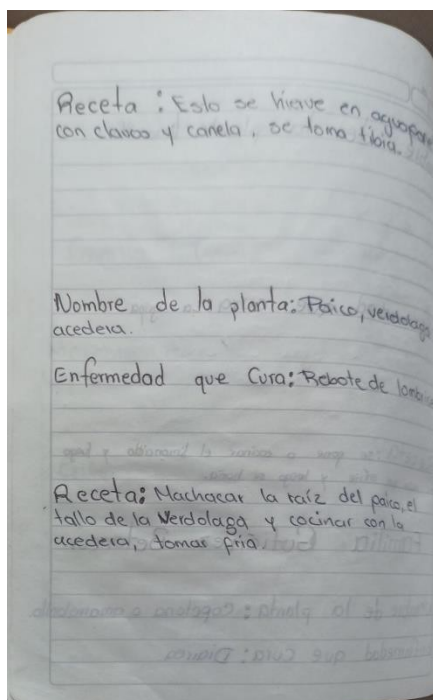 Receta: Esto se hierve en aguapanela
con clavos y canela, se toma tibia.
Nombre de la planta: Paico, verdolaga
acedera.
Enfermedad que Cura: Rebote de
Receta: Machacar la raíz del paico, el
tallo de la Verdolaga y cocinar con la
acedera, tomar fría.